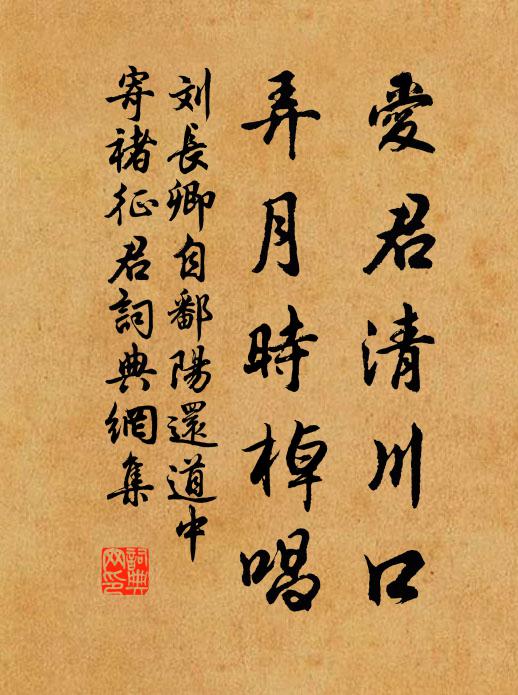 愛君清川口
弄月時棹唱
刘長卿自鄱陽還道中
寄褚征君詞典網集
詞典网印